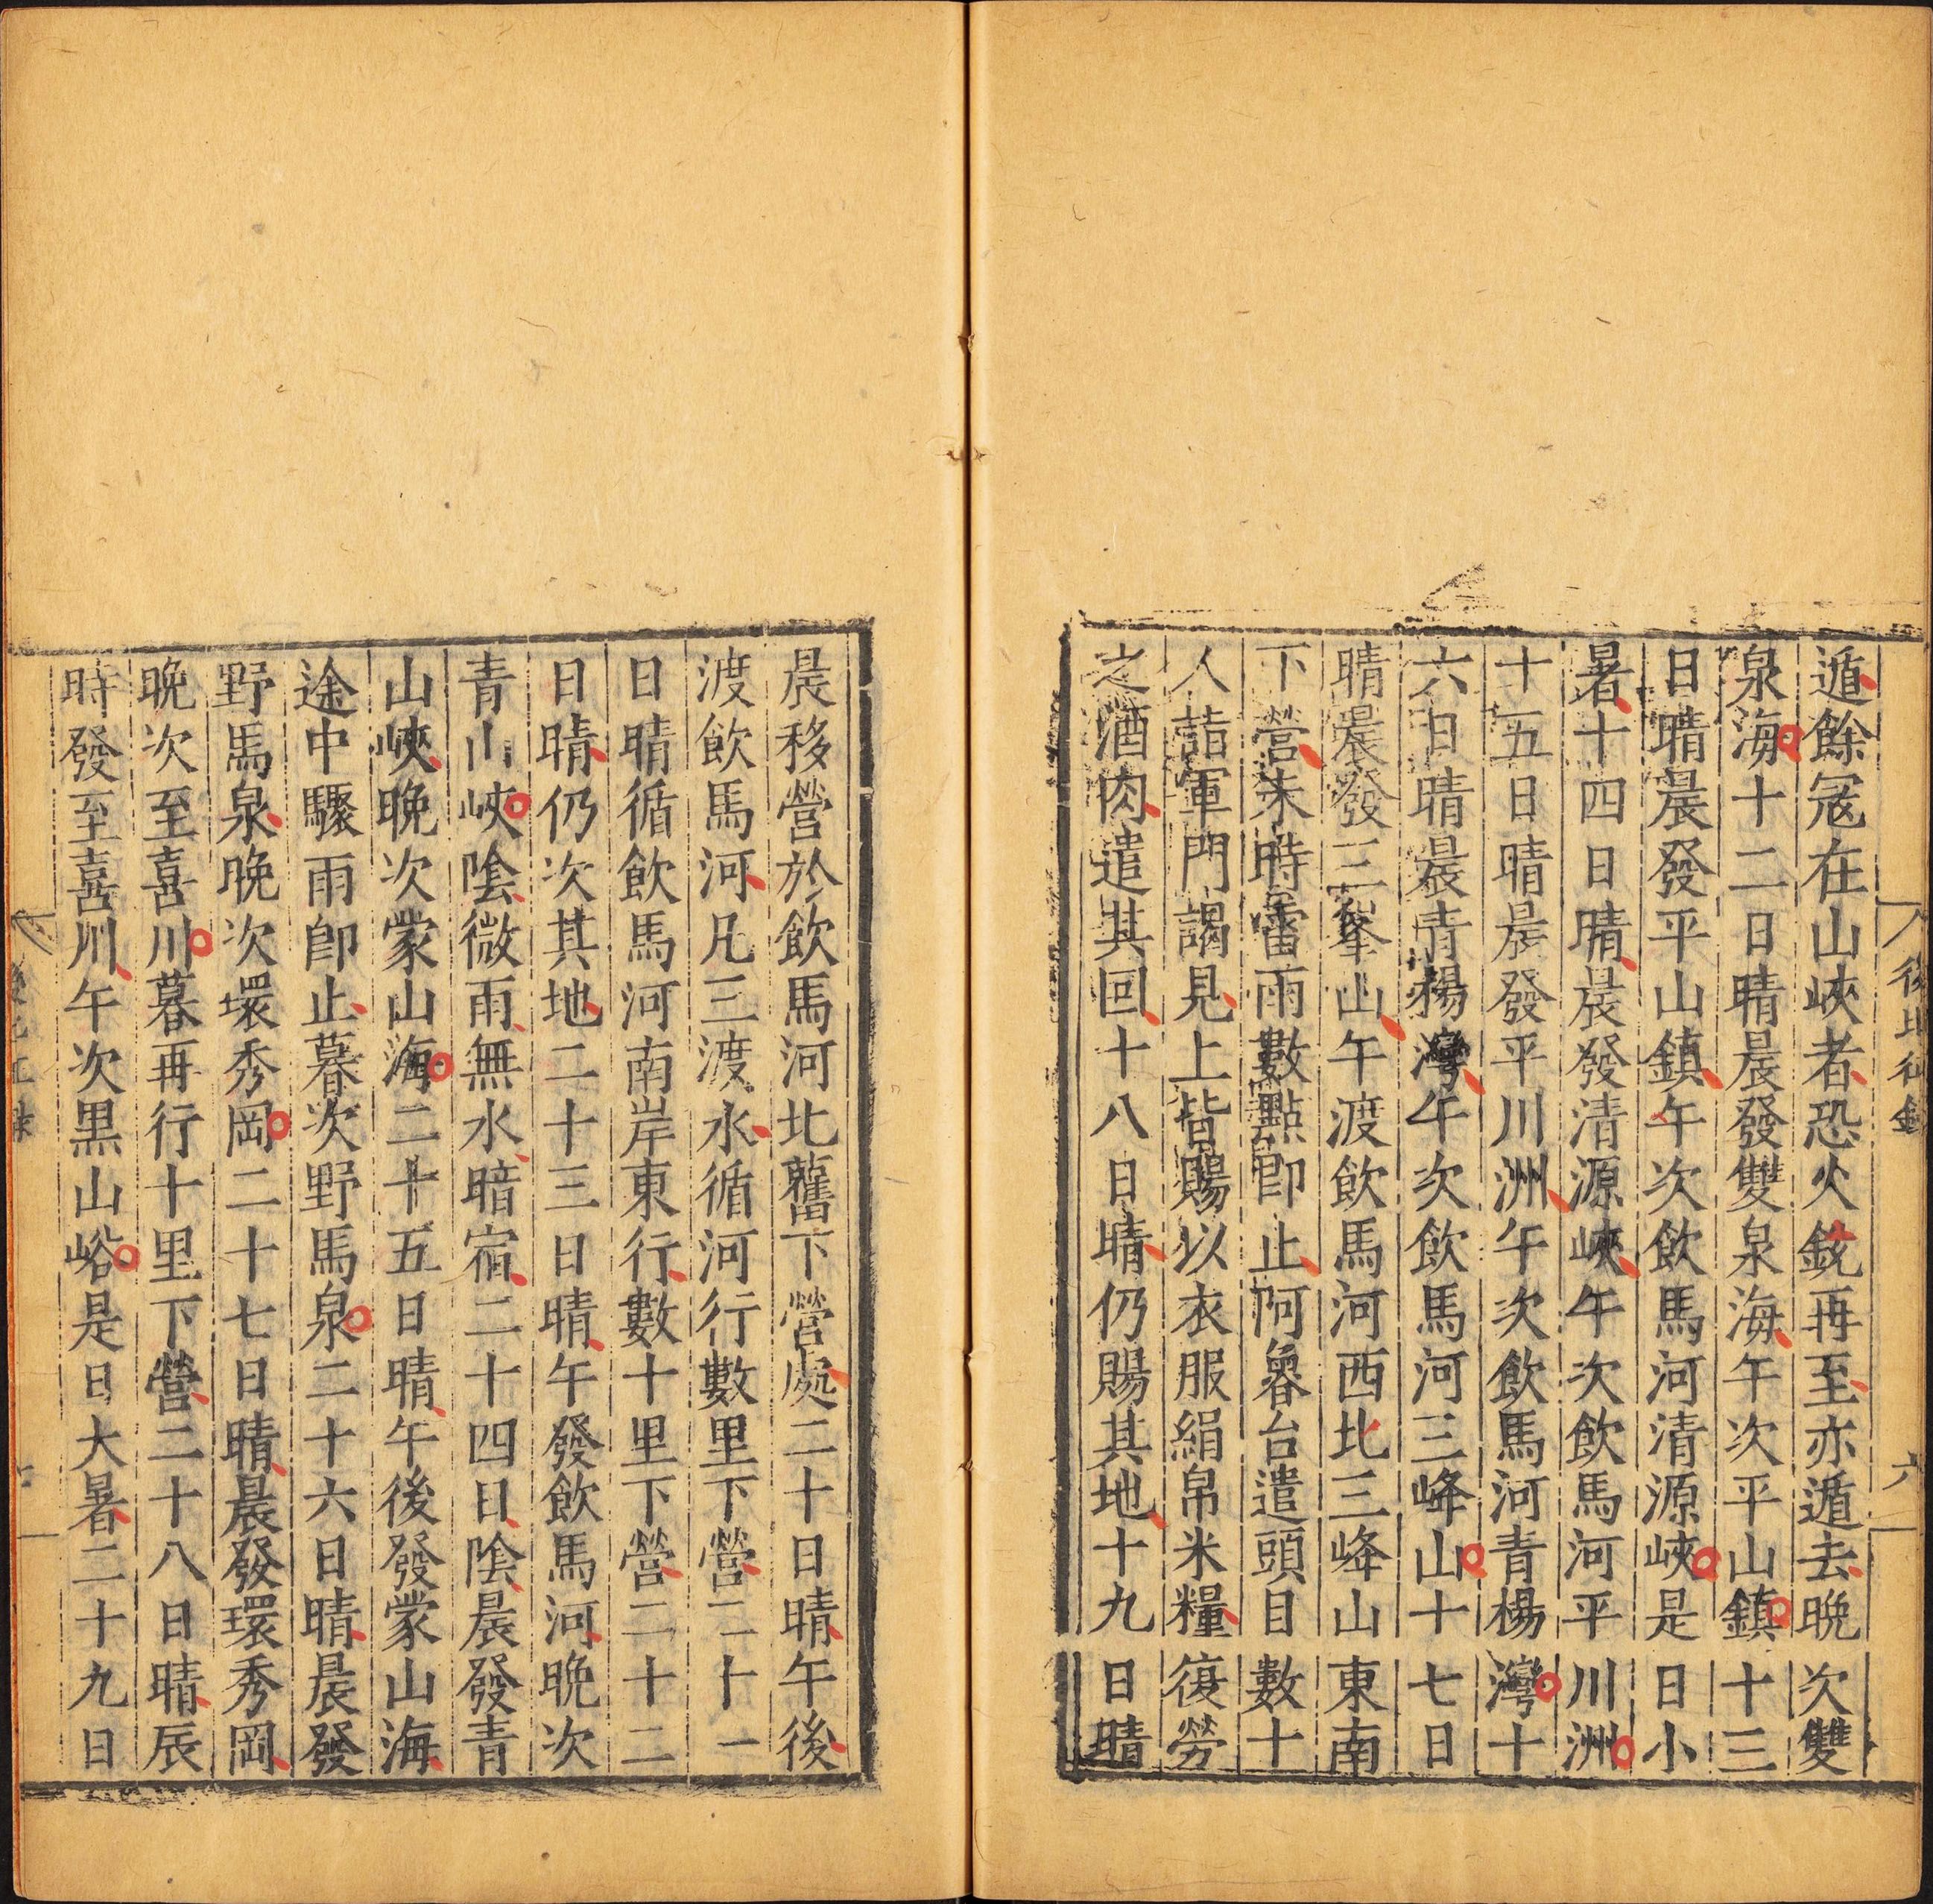 後北征錄
六
遁餘冦在山峽者恐火銃再至亦遁去晩次雙
泉海十二日晴晨發雙泉海午次平山鎮十三
日晴晨發平山鎮午次飲馬河清源峽是日小
暑十四日晴晨發清源峽午次飲馬河平川洲
十五日晴晨發平川洲午次飲馬河青楊灣十
六日晴晨青楊灣午次飲馬河三峰山十七日
晴晨發三峯山午渡飲馬河西北三峰山東南
下營未時雷雨數點即止阿魯台遣頭目數十
人詣軍門謁見上皆賜以衣服絹帛米糧復勞
之酒肉遣其回十八日晴仍賜其地十九日晴
晨移營於飲馬河北舊下營處二十日晴午後
渡飲馬河凡三渡水循河行數里下營二十一
日晴循飲馬河南岸東行數十里下營二十二
日晴仍次其地二十三日晴午發飲馬河晩次
青山峽陰微雨無水暗宿二十四日陰晨發青
山峽晩次蒙山海二十五日晴午後發蒙山海
途中驟雨即止暮次野馬泉二十六日晴晨發
野馬泉晩次環秀岡二十七日晴晨發環秀岡
晩次至喜川暮再行十里下營二十八日晴辰
時發至喜川午次黒山峪是日大暑二十九日